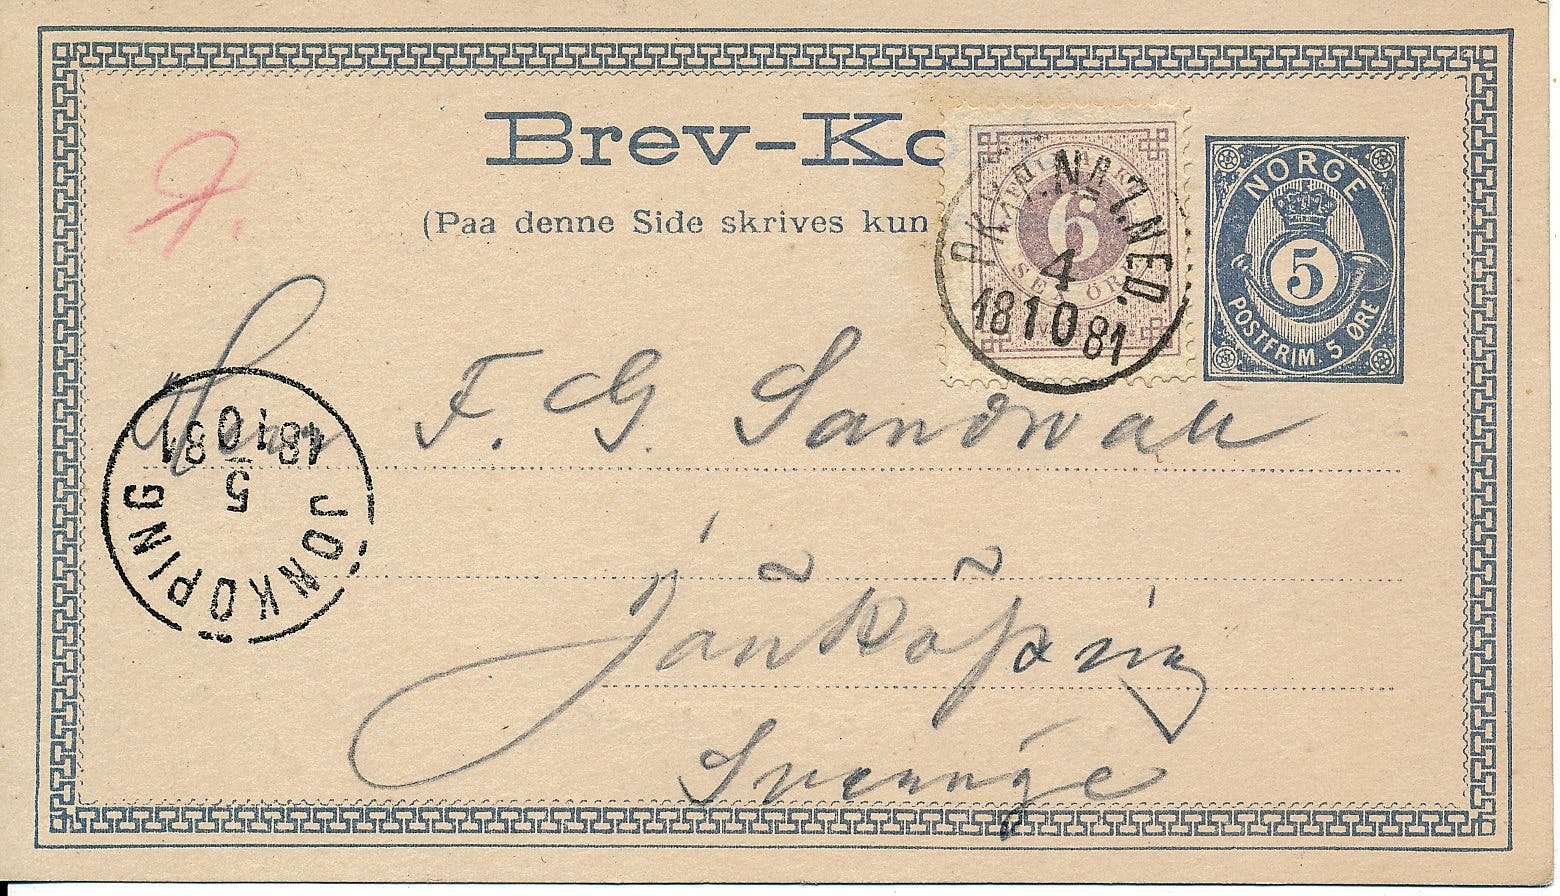 Brev-Ko
(Paa denne Side skrives kun
6
SEX ÖRE
PKXP. NR 7. NED.
4
18 10 81
NORGE
5
POSTFRIM. 5 ØRE
Herr F. G. Sandwall
18 10 81
5
JÖNKÖPING
Jönköping
Sverige